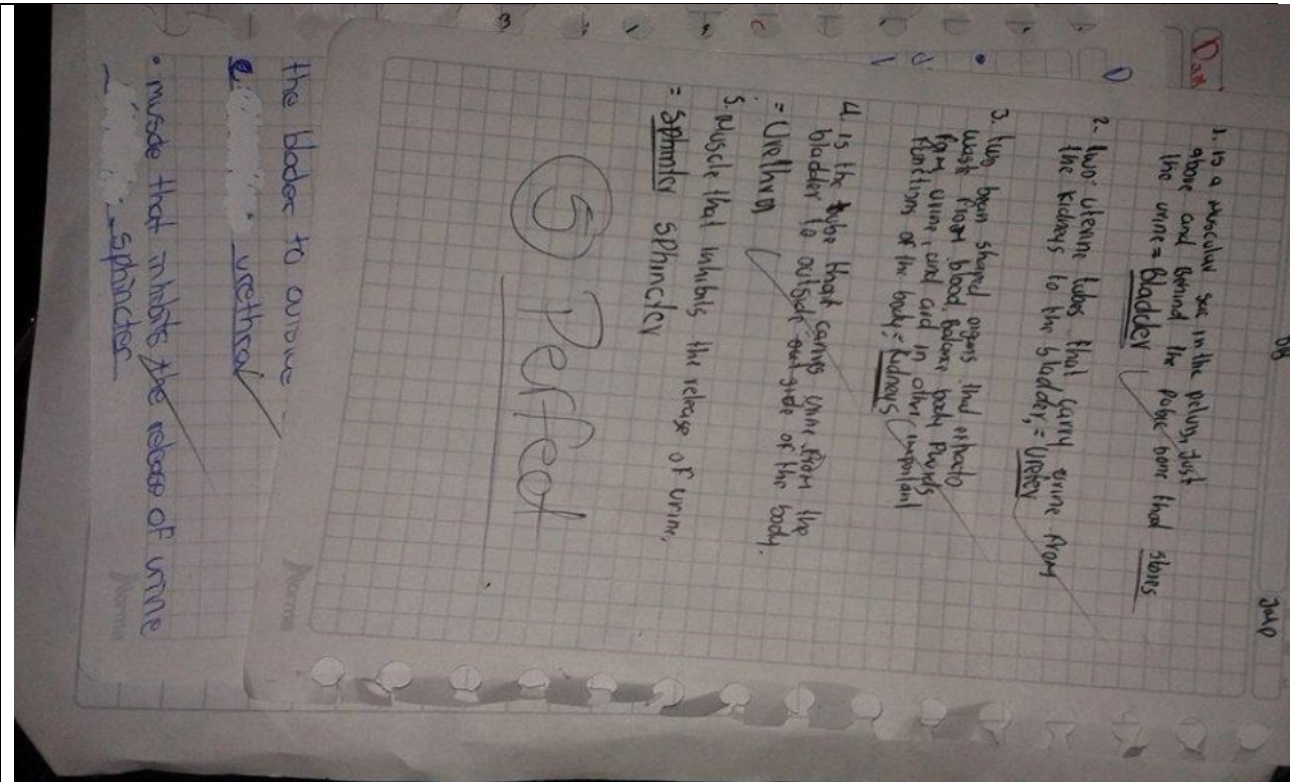 1. is a Muscular sac in the pelvis, just
above and Behind the pubic bone that stores
the urine = Bladder
2. two uterine tubes that carry urine from
the kidneys to the bladder, = Ureter
3. two bean shaped organs that
waste from blood, Balance body Fluids
form urine, and aid in other important
Functions of the body = kidneys
4. is the tube that carries urine from the
bladder to outside of the body.
= Urethra
5. Muscle that inhibits the release of urine,
= Sphinter sphincter
5 Perfect
the blader to
urethra
• muscle that inhibits the release of urine
sphincter
Norma
Norma